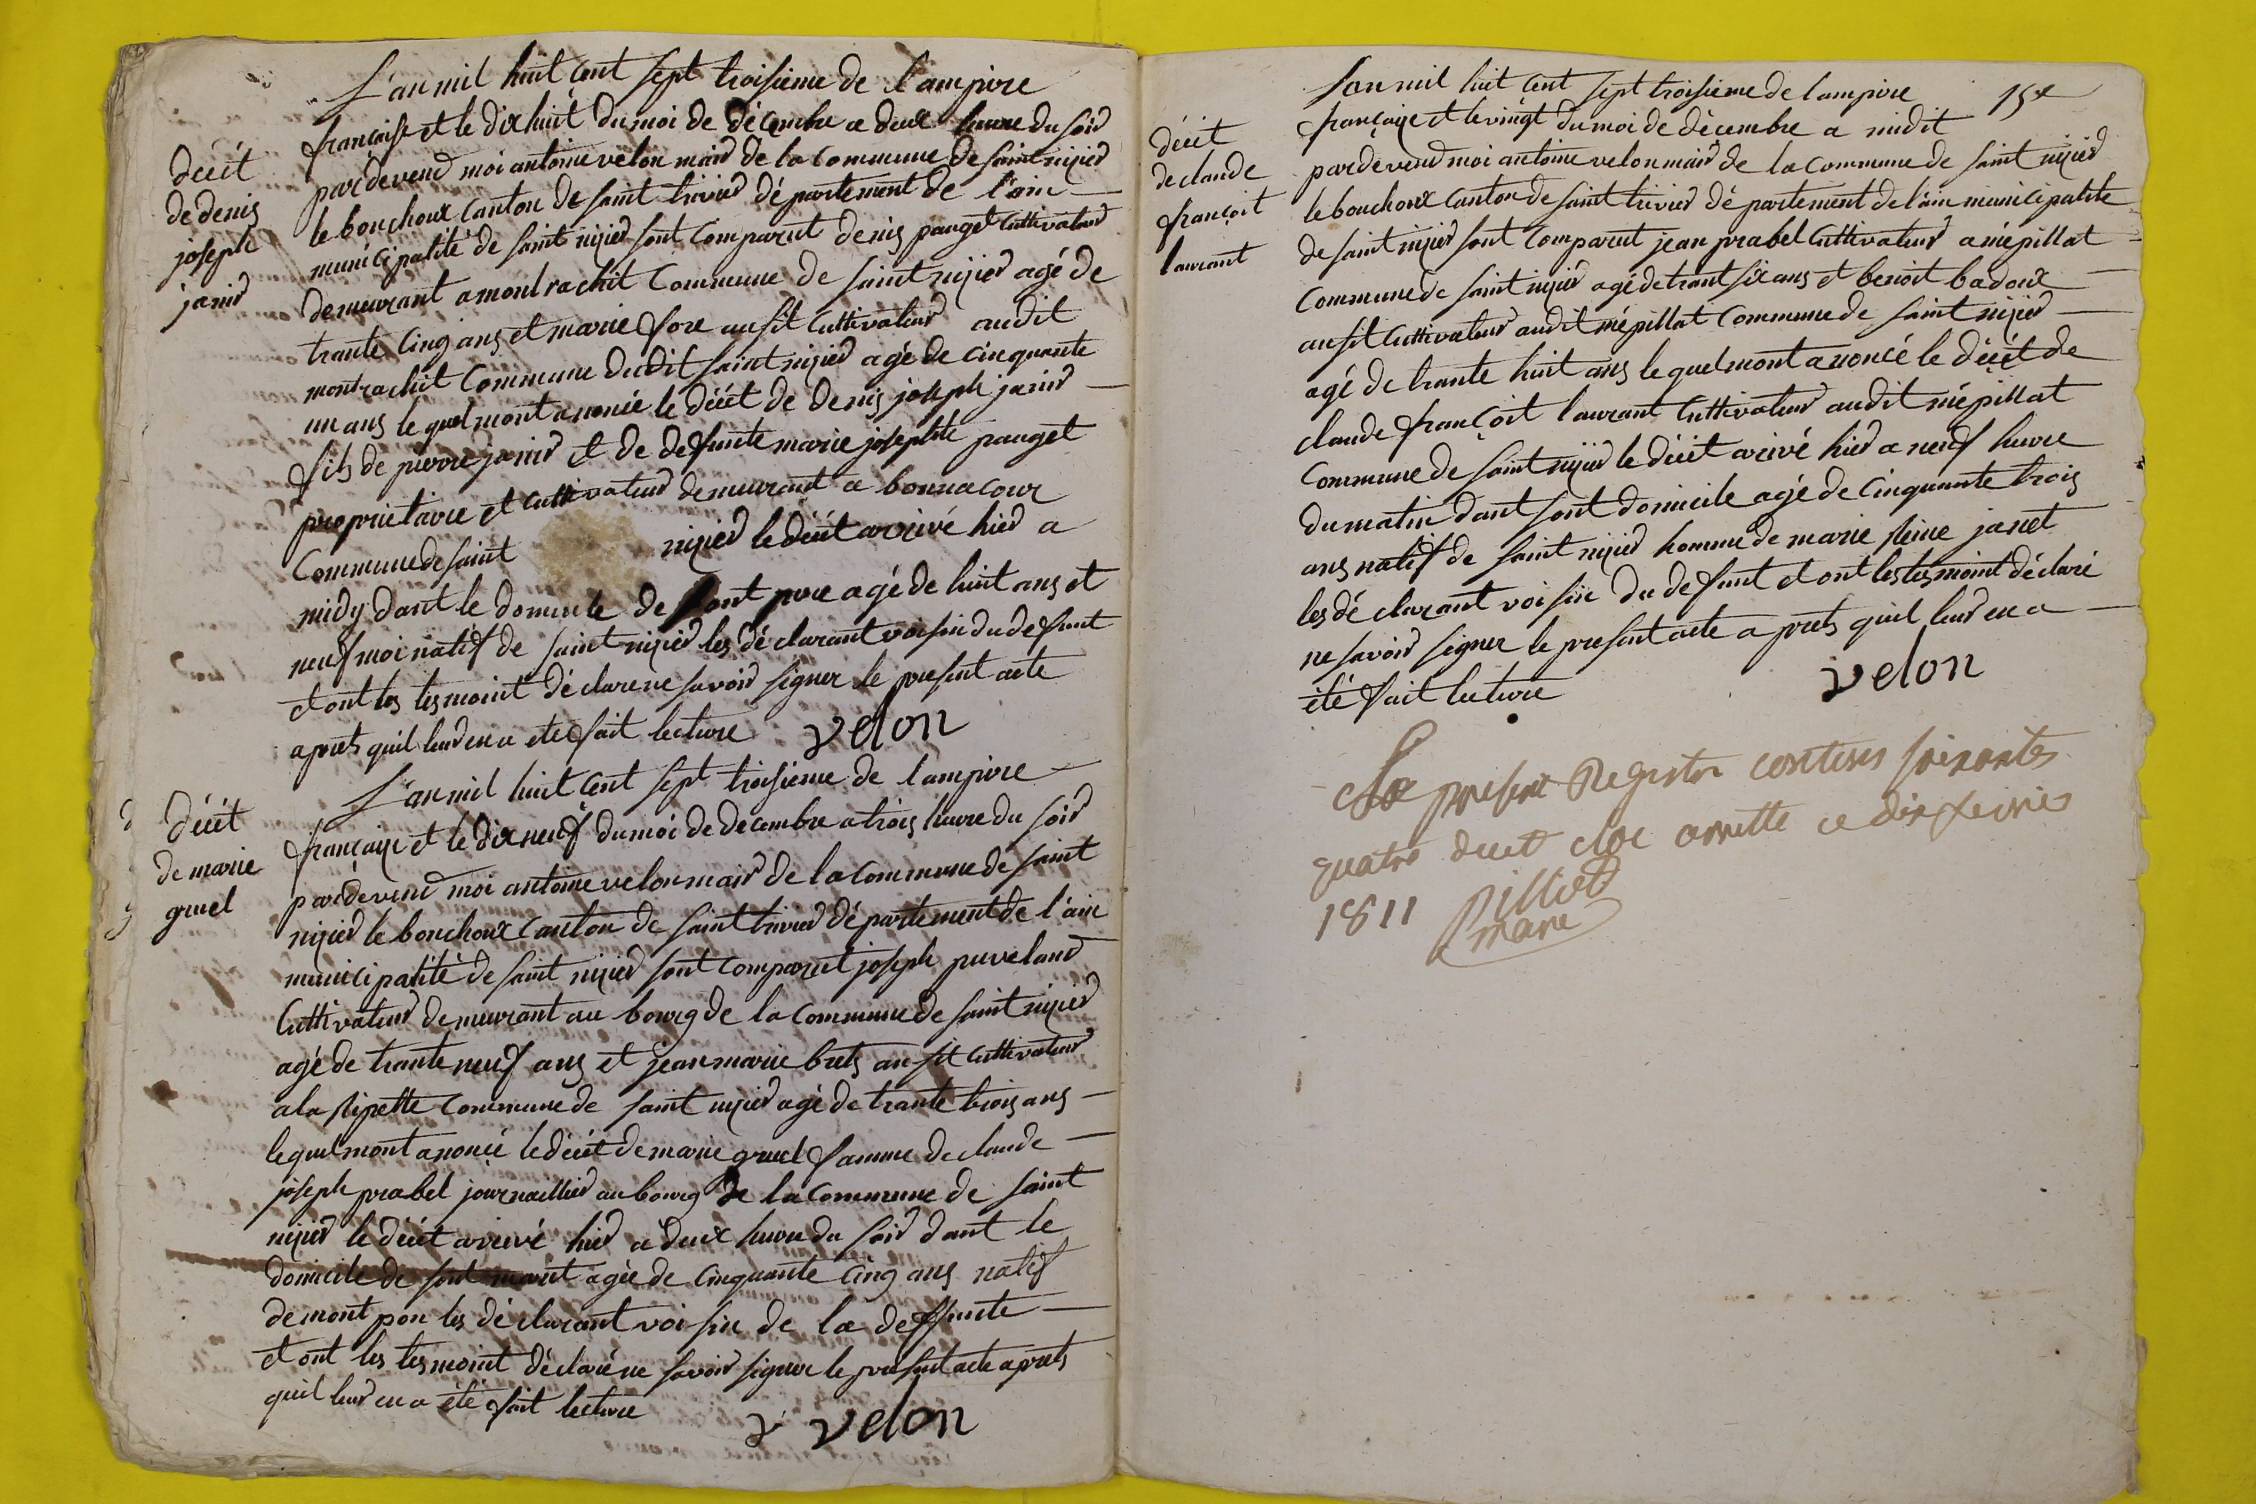 L'an mil huit cent sept troisieme de l'ampire
française et le dix huit du moi de décembre a deux heure du soir
décét
de denis
joseph
janid
pardevend moi antoine velon maird de la commune de saint nizied
le bouchoux canton de saint trivied département de l'ain
municipalité de saint nizied sont comparut denis pauget cultivateur
demeurant a montrachit commune de saint nizied agé de
trante cinq ans et marie fore ausit cultivateur audit
montrachit commune dudit saint nizied agé de cinquante
un ans le quel mont anoncé le décét de denis joseph janid
fils de pierre janid et de defunte marie josephte pauget
proprietaire et cultivateur demeurant a bonnacour
commune de saint nizied le décét arrivé hied a
midy dant le domicile de sont pere agé de huit ans et
neuf moi natif de saint nizied les déclarant voisin du defunt
et ont les tesmoint déclare ne savoir signer le present acte
aprets quil leur en a ete fait lecture velon
L'an mil huit cent sept troisieme de l'ampire
décét
de marie
gruel
française et le dix neuf du moi de decembre a trois heure du soir
pardevend moi antoine velon maird de la commune de saint
nizied le bouchoux canton de saint trivied département de l'ain
municipalité de saint nizied sont comparut joseph puveland
cultivateur demeurant au bourg de la commune de saint nizied
agé de trante neuf ans et jean marie brets ausit cultivateur
a la ripette commune de saint nizied agé de trante trois ans
le quel mont anoncé le décét de marie gruel famme de claude
joseph prabel journaillier au bourg de la commune de saint
nizied le décét arrivé hied a deux heure du soir dant le
domicile de sont marit agée de cinquante cinq ans natif
de mont pon les déclarant voisin de la deffunte
et ont les tesmoint déclaré ne savoir signer le present acte aprets
quil leur en a été fait lecture
v velon
15e
L'an mil huit cent sept troisieme de lampire
française et le vingt du moi de décembre a midit
décét
de claude
françoit
laurant
pardevend moi antoine velon maird de la commune de saint nizied
le bouchoux canton de saint trivied département de l'ain municipalité
de saint nizied sont comparut jean prabel cultivateur a mépillat
commune de saint nizied agé de trant six ans et benoit badoux
ausit cultivateur audit mépillat commune de saint nizied
agé de trante huit ans le quel mont anoncé le décét de
claude françoit laurant cultivateur audit mépillat
commune de saint nizied le décét arivé hied a neuf heure
du matin dant sont domicile agé de cinquante trois
ans natif de saint nizied homme de marie reine janet
les déclarant voisin du defunt et ont les tesmoint déclaré
ne savoir signer le present acte aprets quil leur en a
été fait lecture velon
Le present Registre contenes soixantes
quatre decet cloc arretté ce dix fevrier
1811 Pillod
mare